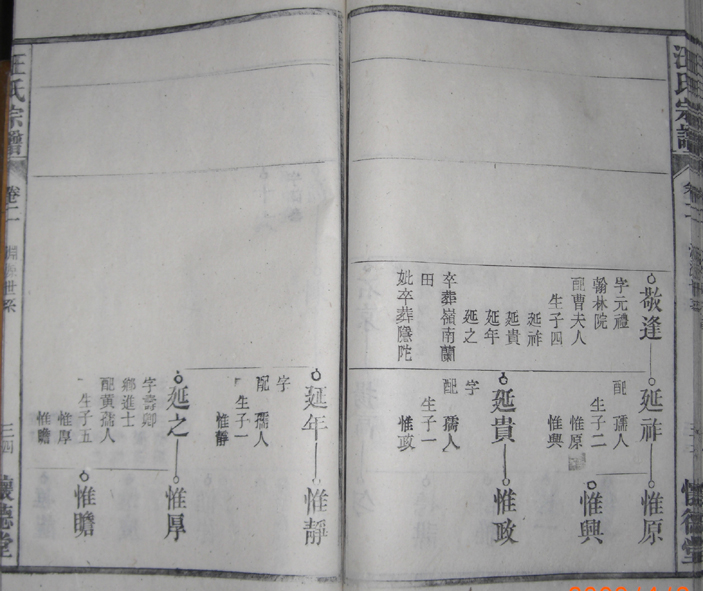 汪氏宗譜
卷二
懷德堂
敬逢
字元禮
翰林院
配曹夫人
生子四
延祚
延貴
延年
延之
卒葬嶺南蘭
田
妣卒葬隱陀
延祚
配 孺人
生子二
惟原
惟興
惟原
惟興
延貴
字
配 孺人
生子一
惟政
惟政
延年
字
配 孺人
生子一
惟靜
惟靜
延之
字壽卿
鄉進士
配黃孺人
生子五
惟厚
惟瞻
惟厚
惟瞻
汪氏宗譜
卷二
三四
懷德堂